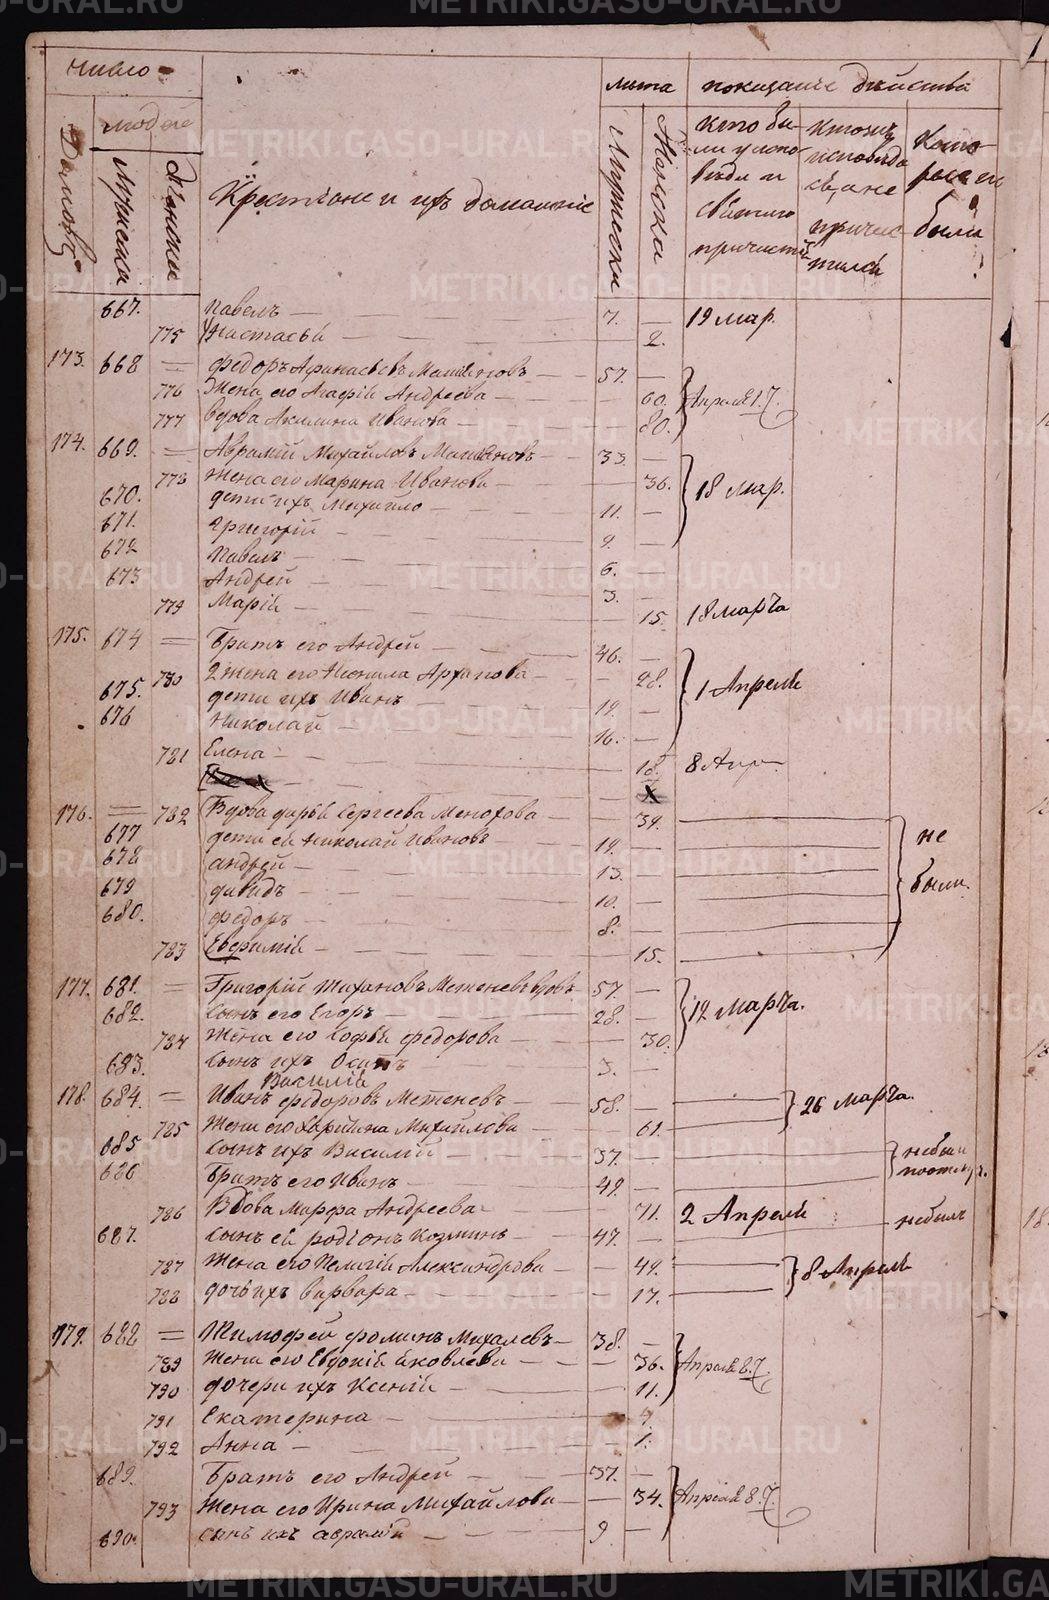 Число
людей
Домовъ
Мужеска
Женска
Крестьяне и ихъ домашніе
лѣта
Мужеска
Женска
показаніе дѣйства
кто бы-
ли у испо-
вѣди и
святаго
причастія
кто изъ
исповѣда
лся, а не
причас-
тился
кото
рые не
были
667. Павелъ 7. 19 мар.
775 Анастасья 2.
173. 668 = Федоръ Афанасьевъ 57.
776 Жена его Агафія Андреева 60. Апреля 17.
777 Вдова Акилина Иванова 80.
174. 669. = Аврамій Михайловъ 33.
778 Жена его Марина Иванова 36. 18 мар.
670. дети ихъ Михайло 11.
671. Григорій 9.
672 Павелъ 6.
673 Андрей 3.
779 Марія 15. 18 марта
175. 674 = Братъ его Андрей 46.
780 2 жена его Неонила Архипова 28. 1 Апреля
675. дети ихъ Иванъ 19.
676 Николай 16.
781 Елена 18. 8 Апр
176. = 782 Вдова дарья Сергеева 39.
677 дети ея Николай Ивановъ 19. не
678 андрей 13.
679 давидъ 10. были.
680. федоръ 8.
783 Евфимія 15.
177. 681. = Григорій 57.
682. Сынъ его Егоръ 28. 12 Марта.
784 Жена его Софья федорова 30.
683. Сынъ ихъ Осипъ 3.
Василій
178. 684. = Иванъ федоровъ Метеневъ 58. 26 марта.
785 Жена его Михайлова 61.
685 Сынъ ихъ Василій 37. небыли
686 Братъ его Иванъ 49.
786 Вдова Марфа Андреева 71. 2 Апреля
687. Сынъ ея родіонъ Козминъ 47. небылъ
787 Жена его Пелагія Александрова 49. 8 Апреля
788 дочь ихъ варвара 17.
179. 688 = Тимофей фоминъ Михалевъ 38.
789 Жена его Евдокія Яковлева 36. Апреля 8.7.
790 дочери ихъ Ксенія 11.
791 Екатерина
792 Анна 1.
689. Братъ его Андрей 37.
793 Жена его Ирина Михайлова 34. Апреля 8.7.
690. сынъ ихъ аврамій 9
METRIKI.GASO-URAL.RU